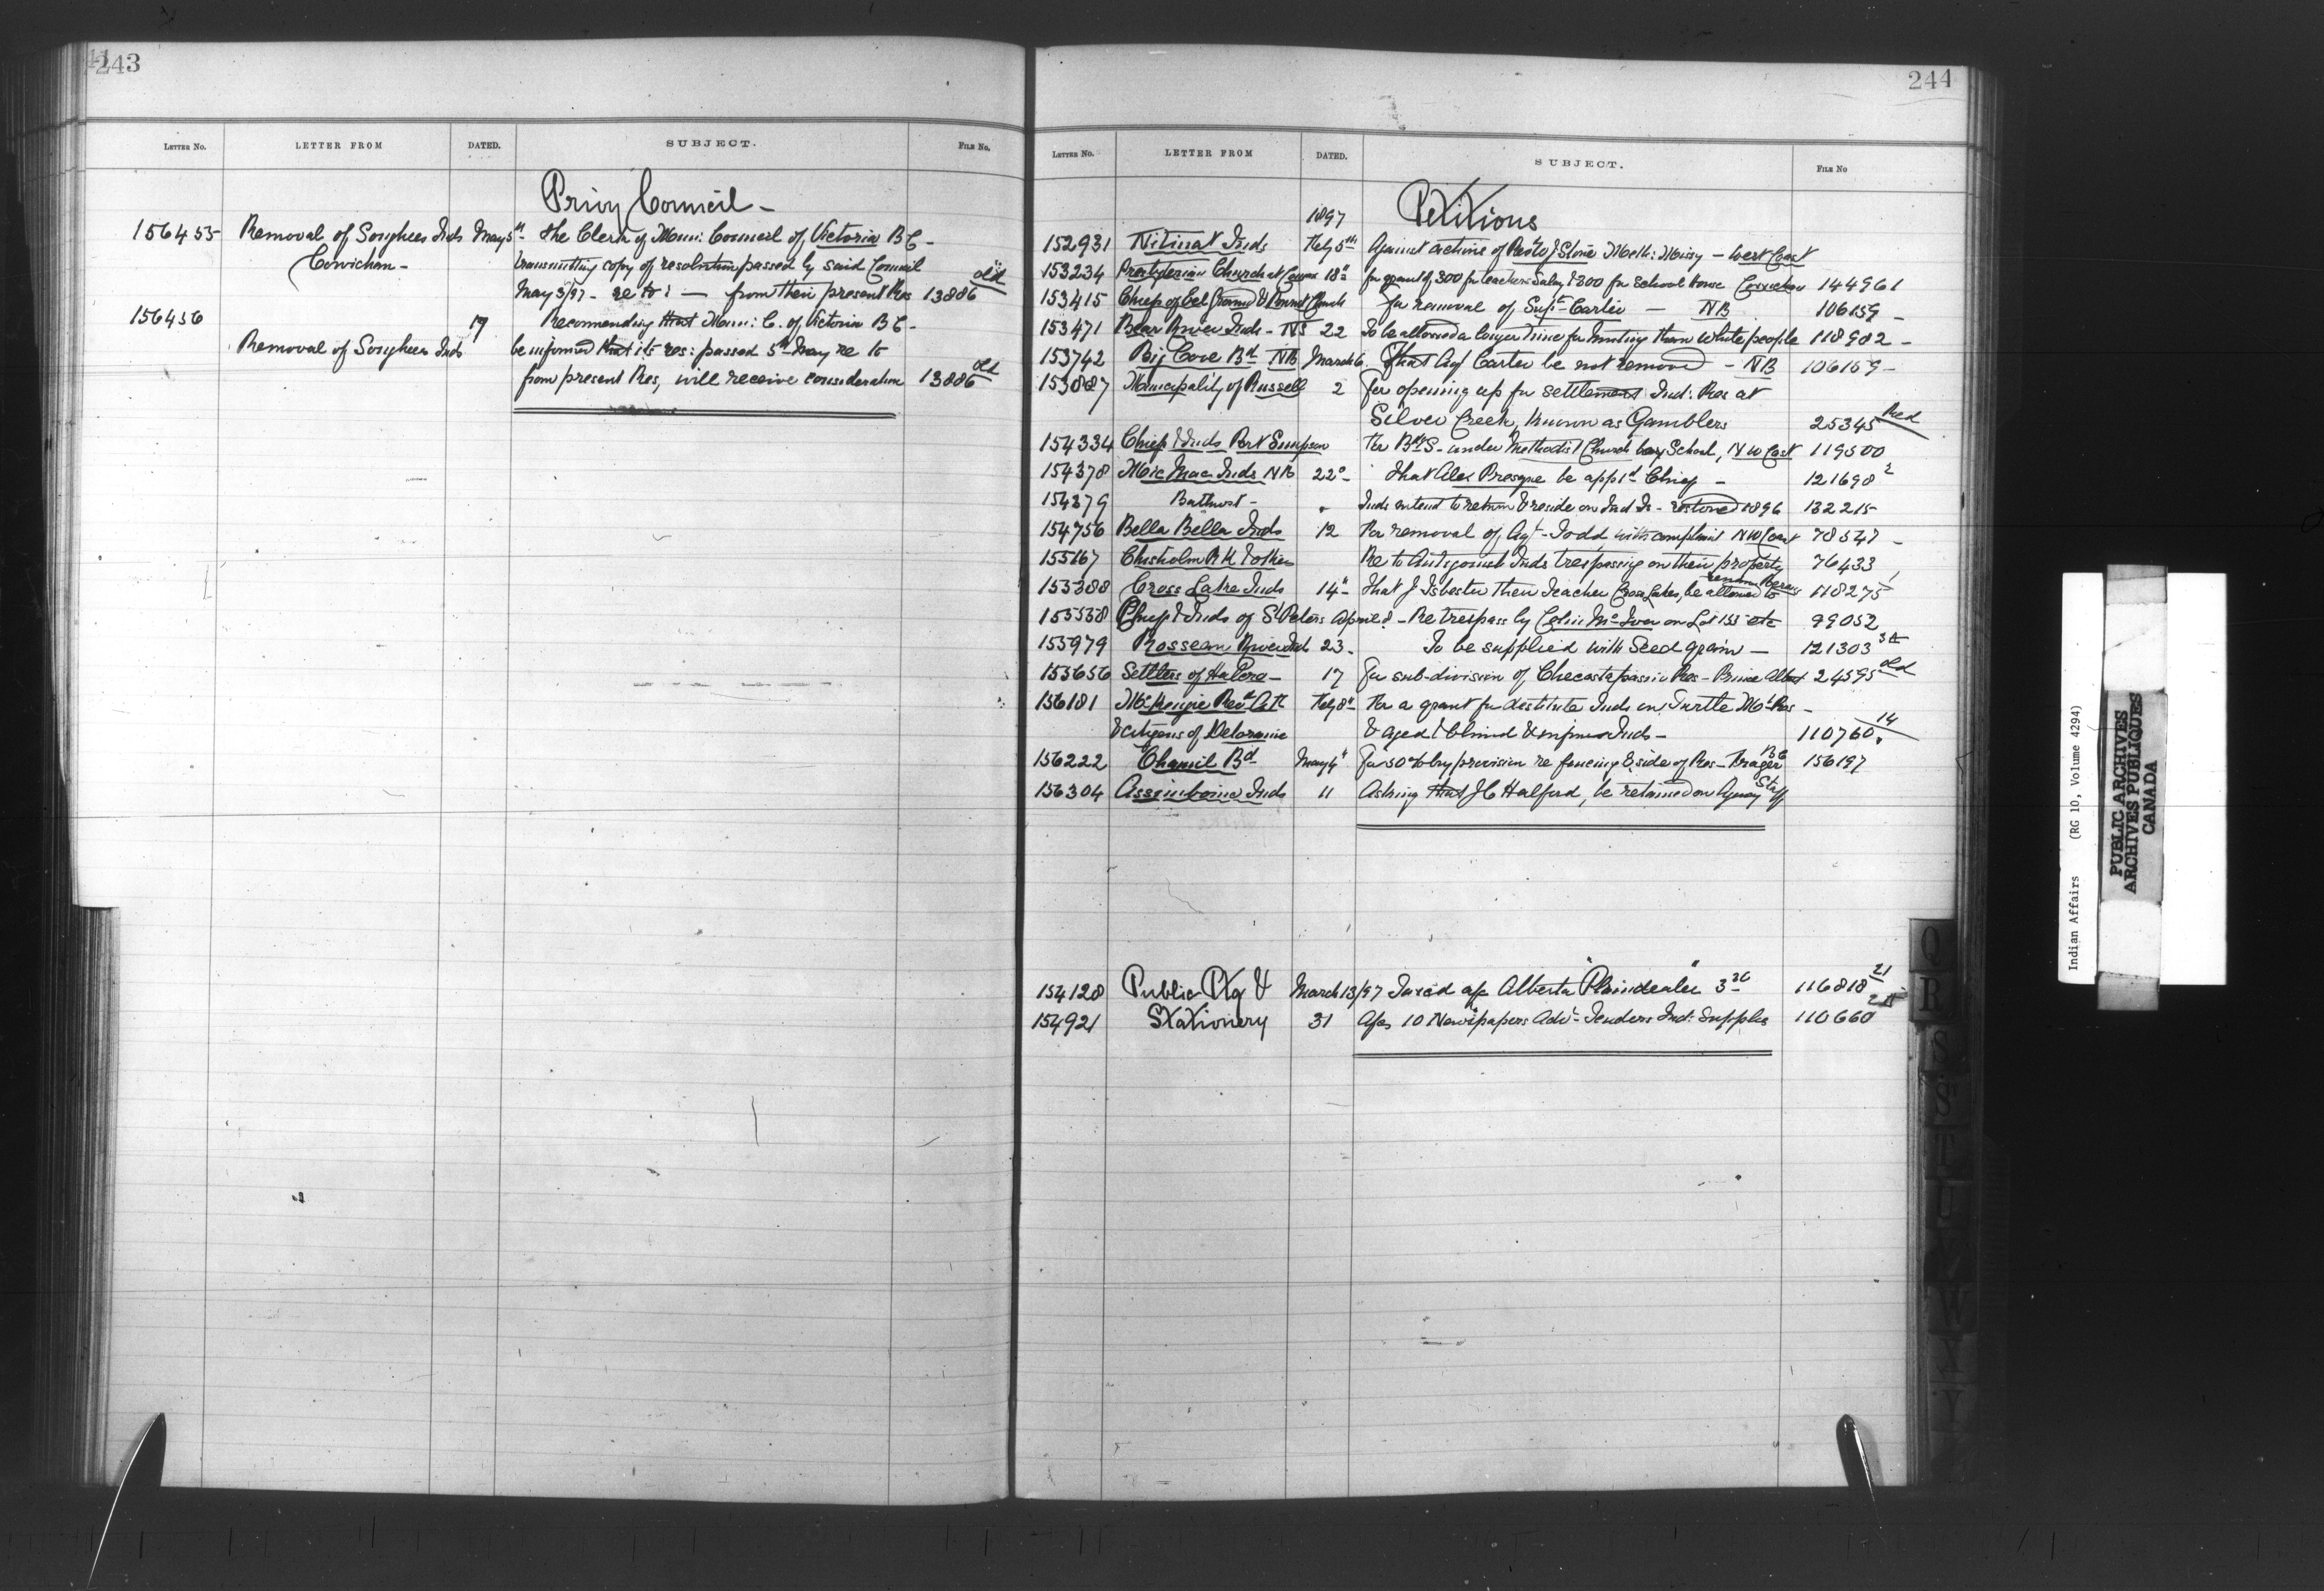 243
LETTER No. LETTER FROM DATED. SUBJECT. FILE No.
Privy Council -
156455 Removal of Songhees Inds May 5th - The Clerk of Muni: Council of Victoria BC -
Cowichan - transmitting copy of resolution passed by said Council
May 3/97 - re to: — from their present Res 13886 old
156456 19 Recomending that Muni: C. of Victoria BC -
Removal of Songhees Inds be informed that its res: passed 5th May re to
from present Res, will receive consideration 13886 old
244
LETTER No. LETTER FROM DATED. SUBJECT. FILE No
1897 Petitions
152931 Nitinat Inds Feby 5th Against actions of Stone Meth: Missy - West Coast
153234 Presbyterian Church at 18" for grant of 300 for teachers Salary & 300 for School House Cowichan 144961
153415 Chief of Eel Ground & Burnt Church for removal of Supt Carter — NB 106159 -
153471 Bear River Inds - NS 22 To be allowed a longer time for hunting than White people 118902 -
153742 Big Cove Bd NB March 6 That Agt Carter be not removed - NB 106159 -
153887 Municipality of Russell 2 for opening up for settlement Ind: Res at
Silver Creek, known as Gamblers 25345 Red
154334 Chief & Inds Port Simpson for Bdg S. under Methodist Church boys School, NW Cost 119500
154378 Mic Mac Inds NB 22" - that Alex Presque be appt'd Chief - 121698 2
154379 Bathurst - " Inds intend to return & reside on Ind Is - restored 1896 132215
154756 Bella Bella Inds 12 For removal of Agt - Todd, with complaint NW Coast 78547 -
155167 Chisholm R H & others Re to Antigonish Inds trespassing on their property 76433
155288 Cross Lake Inds 14" - that J Isbester their Teacher Cross Lakes, be allowed to remain 118275 1
155538 Chief & Inds of St Peters April - Re trespass by Colin McIver on Lot 155 etc 99052
155979 Rosseau River Inds 23 - To be supplied with Seed grain — 121303 3
155656 Settlers of Halcro - 17 for sub-division of Checastapasin Res - Prince Albert 24595 old
156181 McKenzie Revd Feby 8" - For a grant for destitute Inds on Turtle Mt Res -
& citizens of Deloraine & aged & blind & infirm Inds - 110760 14
156222 Cheamil Bd May 4" For 50% by provision re fencing E. side of Res - Fraser BC 156197
156304 Assiniboine Inds 11 Asking that J C Halford, be retained on Agency Staff
154128 Public Ptg & March 13/97 Taxed a/c Alberta "Plaindealer" 116818 21
154921 Stationery 31 A/cs 10 Newspapers Advt - Tenders Ind: Supplies 110660
Q
R
S
S
T
U
V
W
Y
Y
Indian Affairs (RG 10, Volume 4294)
PUBLIC ARCHIVES
ARCHIVES PUBLIQUES
CANADA